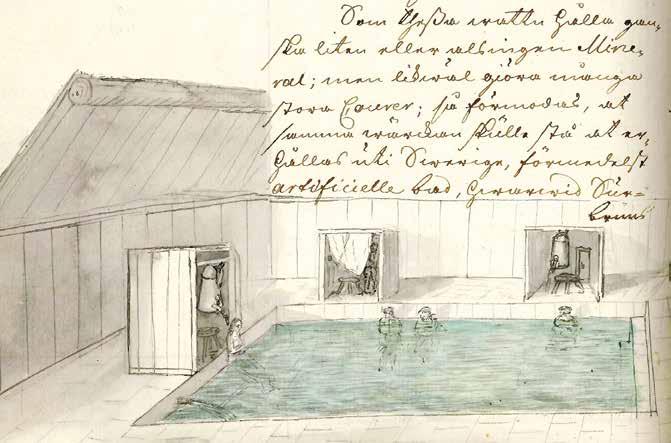 Som theßa wattn hålla gan-
ska liten eller alsingen Mine-
ral; men likwäl giöra många
stora Courer; så förmodas, at
samma wärckan skulle stå at er-
hållas uti Swerige, förmedelst
artificielle bad, hwarwid Sur-
bruns